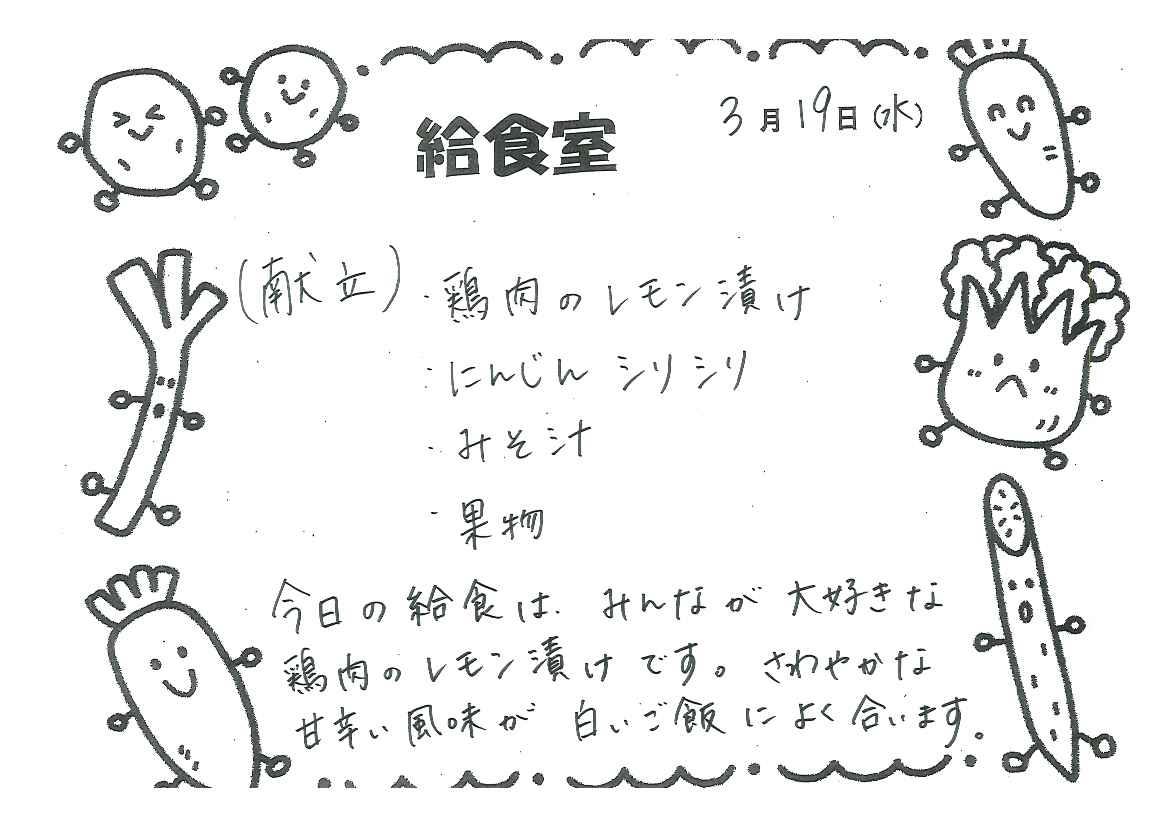 給食室
3月19日(水)
(献立)・鶏肉のレモン漬け
・にんじんシリシリ
・みそ汁
・果物
今日の給食は、みんなが大好きな
鶏肉のレモン漬けです。さわやかな
甘辛い風味が白いご飯によく合います。